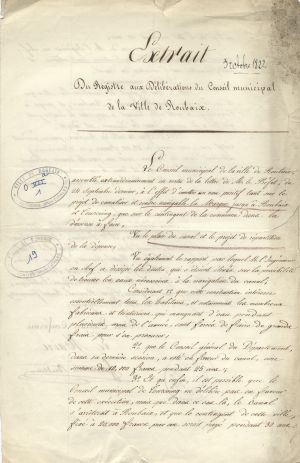 Extrait
3 octobre 1822
Du Registre aux Délibérations du Conseil municipal
de la Ville de Roubaix.
Le Conseil municipal de la ville de Roubaix,
assemblé extraordinairement en vertu de la lettre de Mr le Préfet, du
14 Septembre dernier, à l'effet d'émettre un vœu positif tant sur le
projet de canaliser et rendre navigable la Marque jusqu'à Roubaix
et Tourcoing, que sur le contingent de la commune dans les
travaux à faire;
Vu le plan du canal et le projet de répartition
de la dépense;
Vu également le rapport par lequel Mr l'Ingénieur
en chef a dissipé les doutes qui s'étaient élevés sur la possibilité
de trouver les eaux nécessaires à la navigation du canal;
Considérant 1º que cette construction intéresse
essentiellement tous les habitans, et notamment les nombreux
fabricans et teinturiers, qui manquant d'eau pendant
plusieurs mois de l'année, sont forcés de faire de grands
frais pour s'en procurer;
2º que le Conseil général du Département,
dans sa dernière session, a voté en faveur du canal, une
somme de francs pendant 25 ans;
3º Et qu'enfin, s'il est possible que le
Conseil municipal de Tourcoing ne délibère pas en faveur
de cette exécution, mais que dans ce cas là, le Canal
s'arrêterait à Roubaix, et que le contingent de cette ville
fixé à francs par an serait payé pendant 30 ans
VILLE DE ROUBAIX
O III
1
19